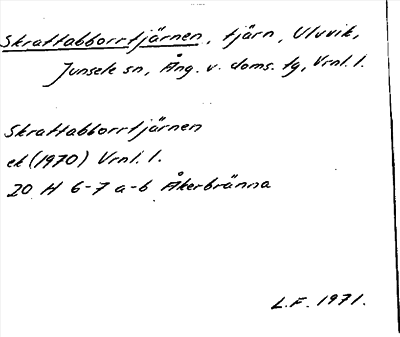 Skrattabborrtjärnen, tjärn, Uluvik,
Junsele sn, Ång. v. doms. tg, Vrnl. l.
Skrattabborrtjärnen
ek (1970) Vrnl. l.
20 H 6-7 a-b Åkerbränna
L.F. 1971.